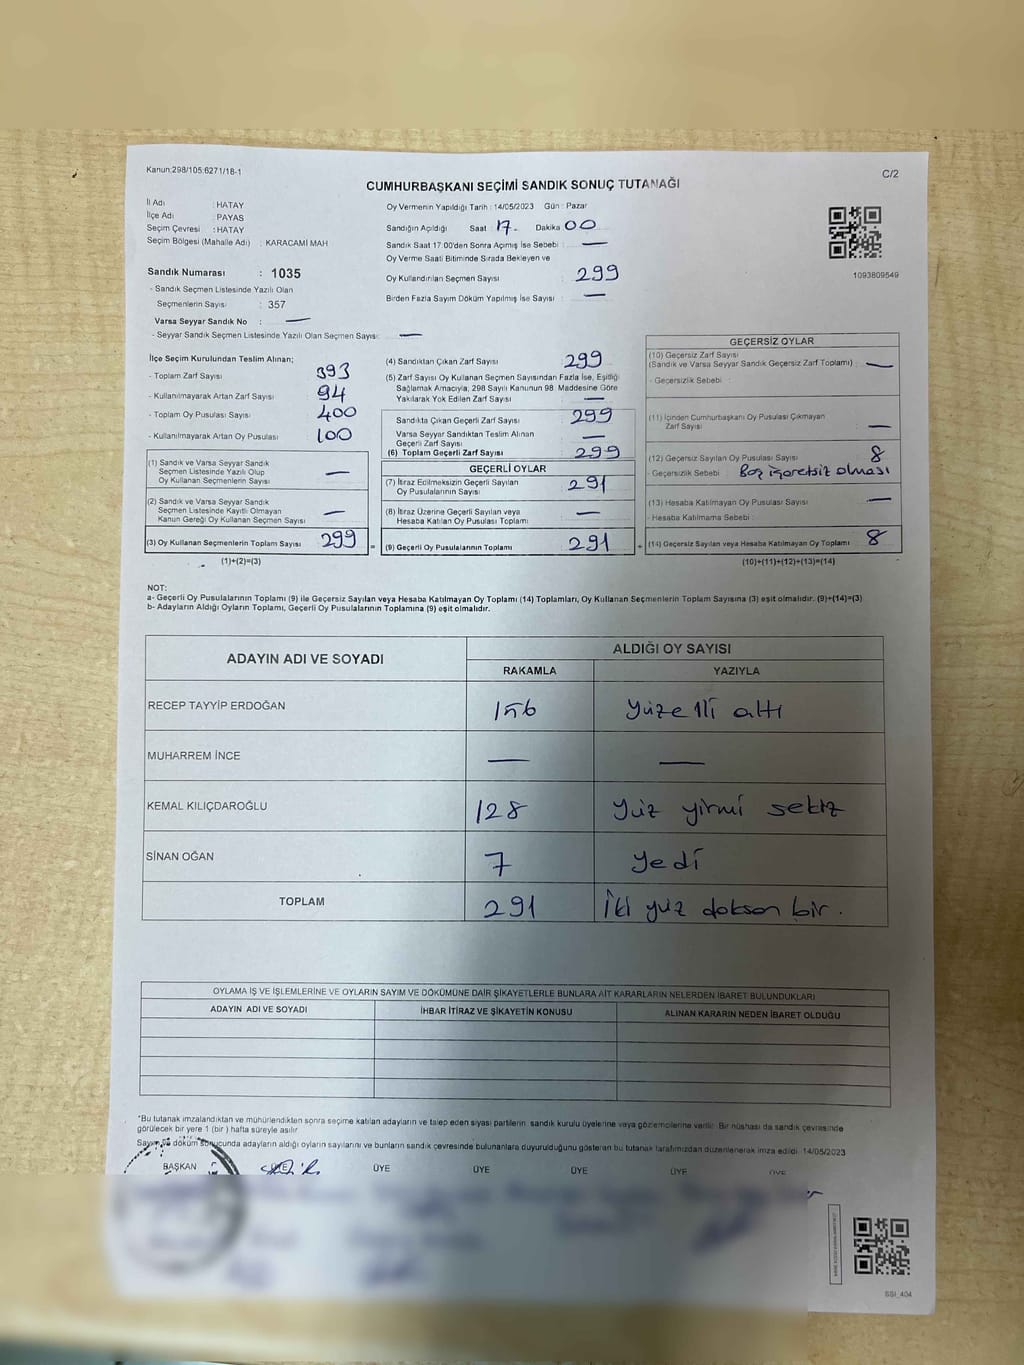 Kanun:298/105:6271/18-1
C/2
CUMHURBAŞKANI SEÇİMİ SANDIK SONUÇ TUTANAĞI
İl Adı : HATAY
İlçe Adı : PAYAS
Seçim Çevresi : HATAY
Seçim Bölgesi (Mahalle Adı) : KARACAMİ MAH
Sandık Numarası : 1035
- Sandık Seçmen Listesinde Yazılı Olan
Seçmenlerin Sayısı : 357
Varsa Seyyar Sandık No : —
- Seyyar Sandık Seçmen Listesinde Yazılı Olan Seçmen Sayısı: —
Oy Vermenin Yapıldığı Tarih : 14/05/2023 Gün : Pazar
Sandığın Açıldığı Saat : 17. Dakika 00
Sandık Saat 17:00'den Sonra Açımış İse Sebebi : —
Oy Verme Saati Bitiminde Sırada Bekleyen ve
Oy Kullandırılan Seçmen Sayısı : 299
Birden Fazla Sayım Döküm Yapılmış İse Sayısı : —
1093809549
İlçe Seçim Kurulundan Teslim Alınan;
- Toplam Zarf Sayısı : 393
- Kullanılmayarak Artan Zarf Sayısı : 94
- Toplam Oy Pusulası Sayısı : 400
- Kullanılmayarak Artan Oy Pusulası : 100
(1) Sandık ve Varsa Seyyar Sandık
Seçmen Listesinde Yazılı Olup
Oy Kullanan Seçmenlerin Sayısı : —
(2) Sandık ve Varsa Seyyar Sandık
Seçmen Listesinde Kayıtlı Olmayan
Kanun Gereği Oy Kullanan Seçmen Sayısı : —
(3) Oy Kullanan Seçmenlerin Toplam Sayısı : 299
(1)+(2)=(3)
(4) Sandıktan Çıkan Zarf Sayısı : 299
(5) Zarf Sayısı Oy Kullanan Seçmen Sayısından Fazla İse, Eşitliği
Sağlamak Amacıyla, 298 Sayılı Kanunun 98. Maddesine Göre
Yakılarak Yok Edilen Zarf Sayısı : —
Sandıkta Çıkan Geçerli Zarf Sayısı : 299
Varsa Seyyar Sandıktan Teslim Alınan
Geçerli Zarf Sayısı : —
(6) Toplam Geçerli Zarf Sayısı : 299
GEÇERLİ OYLAR
(7) İtiraz Edilmeksizin Geçerli Sayılan
Oy Pusulalarının Sayısı : 291
(8) İtiraz Üzerine Geçerli Sayılan veya
Hesaba Katılan Oy Pusulası Toplamı : —
= (9) Geçerli Oy Pusulalarının Toplamı : 291
GEÇERSİZ OYLAR
(10) Geçersiz Zarf Sayısı
(Sandık ve Varsa Seyyar Sandık Geçersiz Zarf Toplamı) : —
- Geçersizlik Sebebi :
(11) İçinden Cumhurbaşkanı Oy Pusulası Çıkmayan
Zarf Sayısı : —
(12) Geçersiz Sayılan Oy Pusulası Sayısı : 8
- Geçersizlik Sebebi : Boş işaretsiz olması
(13) Hesaba Katılmayan Oy Pusulası Sayısı : —
- Hesaba Katılmama Sebebi :
+ (14) Geçersiz Sayılan veya Hesaba Katılmayan Oy Toplamı : 8
(10)+(11)+(12)+(13)=(14)
NOT:
a- Geçerli Oy Pusulalarının Toplamı (9) ile Geçersiz Sayılan veya Hesaba Katılmayan Oy Toplamı (14) Toplamları, Oy Kullanan Seçmenlerin Toplam Sayısına (3) eşit olmalıdır. (9)+(14)=(3)
b- Adayların Aldığı Oyların Toplamı, Geçerli Oy Pusulalarının Toplamına (9) eşit olmalıdır.
ADAYIN ADI VE SOYADI ALDIĞI OY SAYISI
RAKAMLA YAZIYLA
RECEP TAYYİP ERDOĞAN 156 yüz elli altı
MUHARREM İNCE — —
KEMAL KILIÇDAROĞLU 128 yüz yirmi sekiz
SİNAN OĞAN 7 yedi
TOPLAM 291 İki yüz doksan bir.
OYLAMA İŞ VE İŞLEMLERİNE VE OYLARIN SAYIM VE DÖKÜMÜNE DAİR ŞİKAYETLERLE BUNLARA AİT KARARLARIN NELERDEN İBARET BULUNDUKLARI
ADAYIN ADI VE SOYADI İHBAR İTİRAZ VE ŞİKAYETİN KONUSU ALINAN KARARIN NEDEN İBARET OLDUĞU
*Bu tutanak imzalandıktan ve mühürlendikten sonra seçime katılan adayların ve talep eden siyasi partilerin sandık kurulu üyelerine veya gözlemcilerine verilir. Bir nüshası da sandık çevresinde
görülecek bir yere 1 (bir ) hafta süreyle asılır
Sayım ve döküm sonucunda adayların aldığı oyların sayılarını ve bunların sandık çevresinde bulunanlara duyurulduğunu gösteren bu tutanak tarafımızdan düzenlenerek imza edildi. 14/05/2023
BAŞKAN ÜYE ÜYE ÜYE ÜYE ÜYE ÜYE
SSI_404